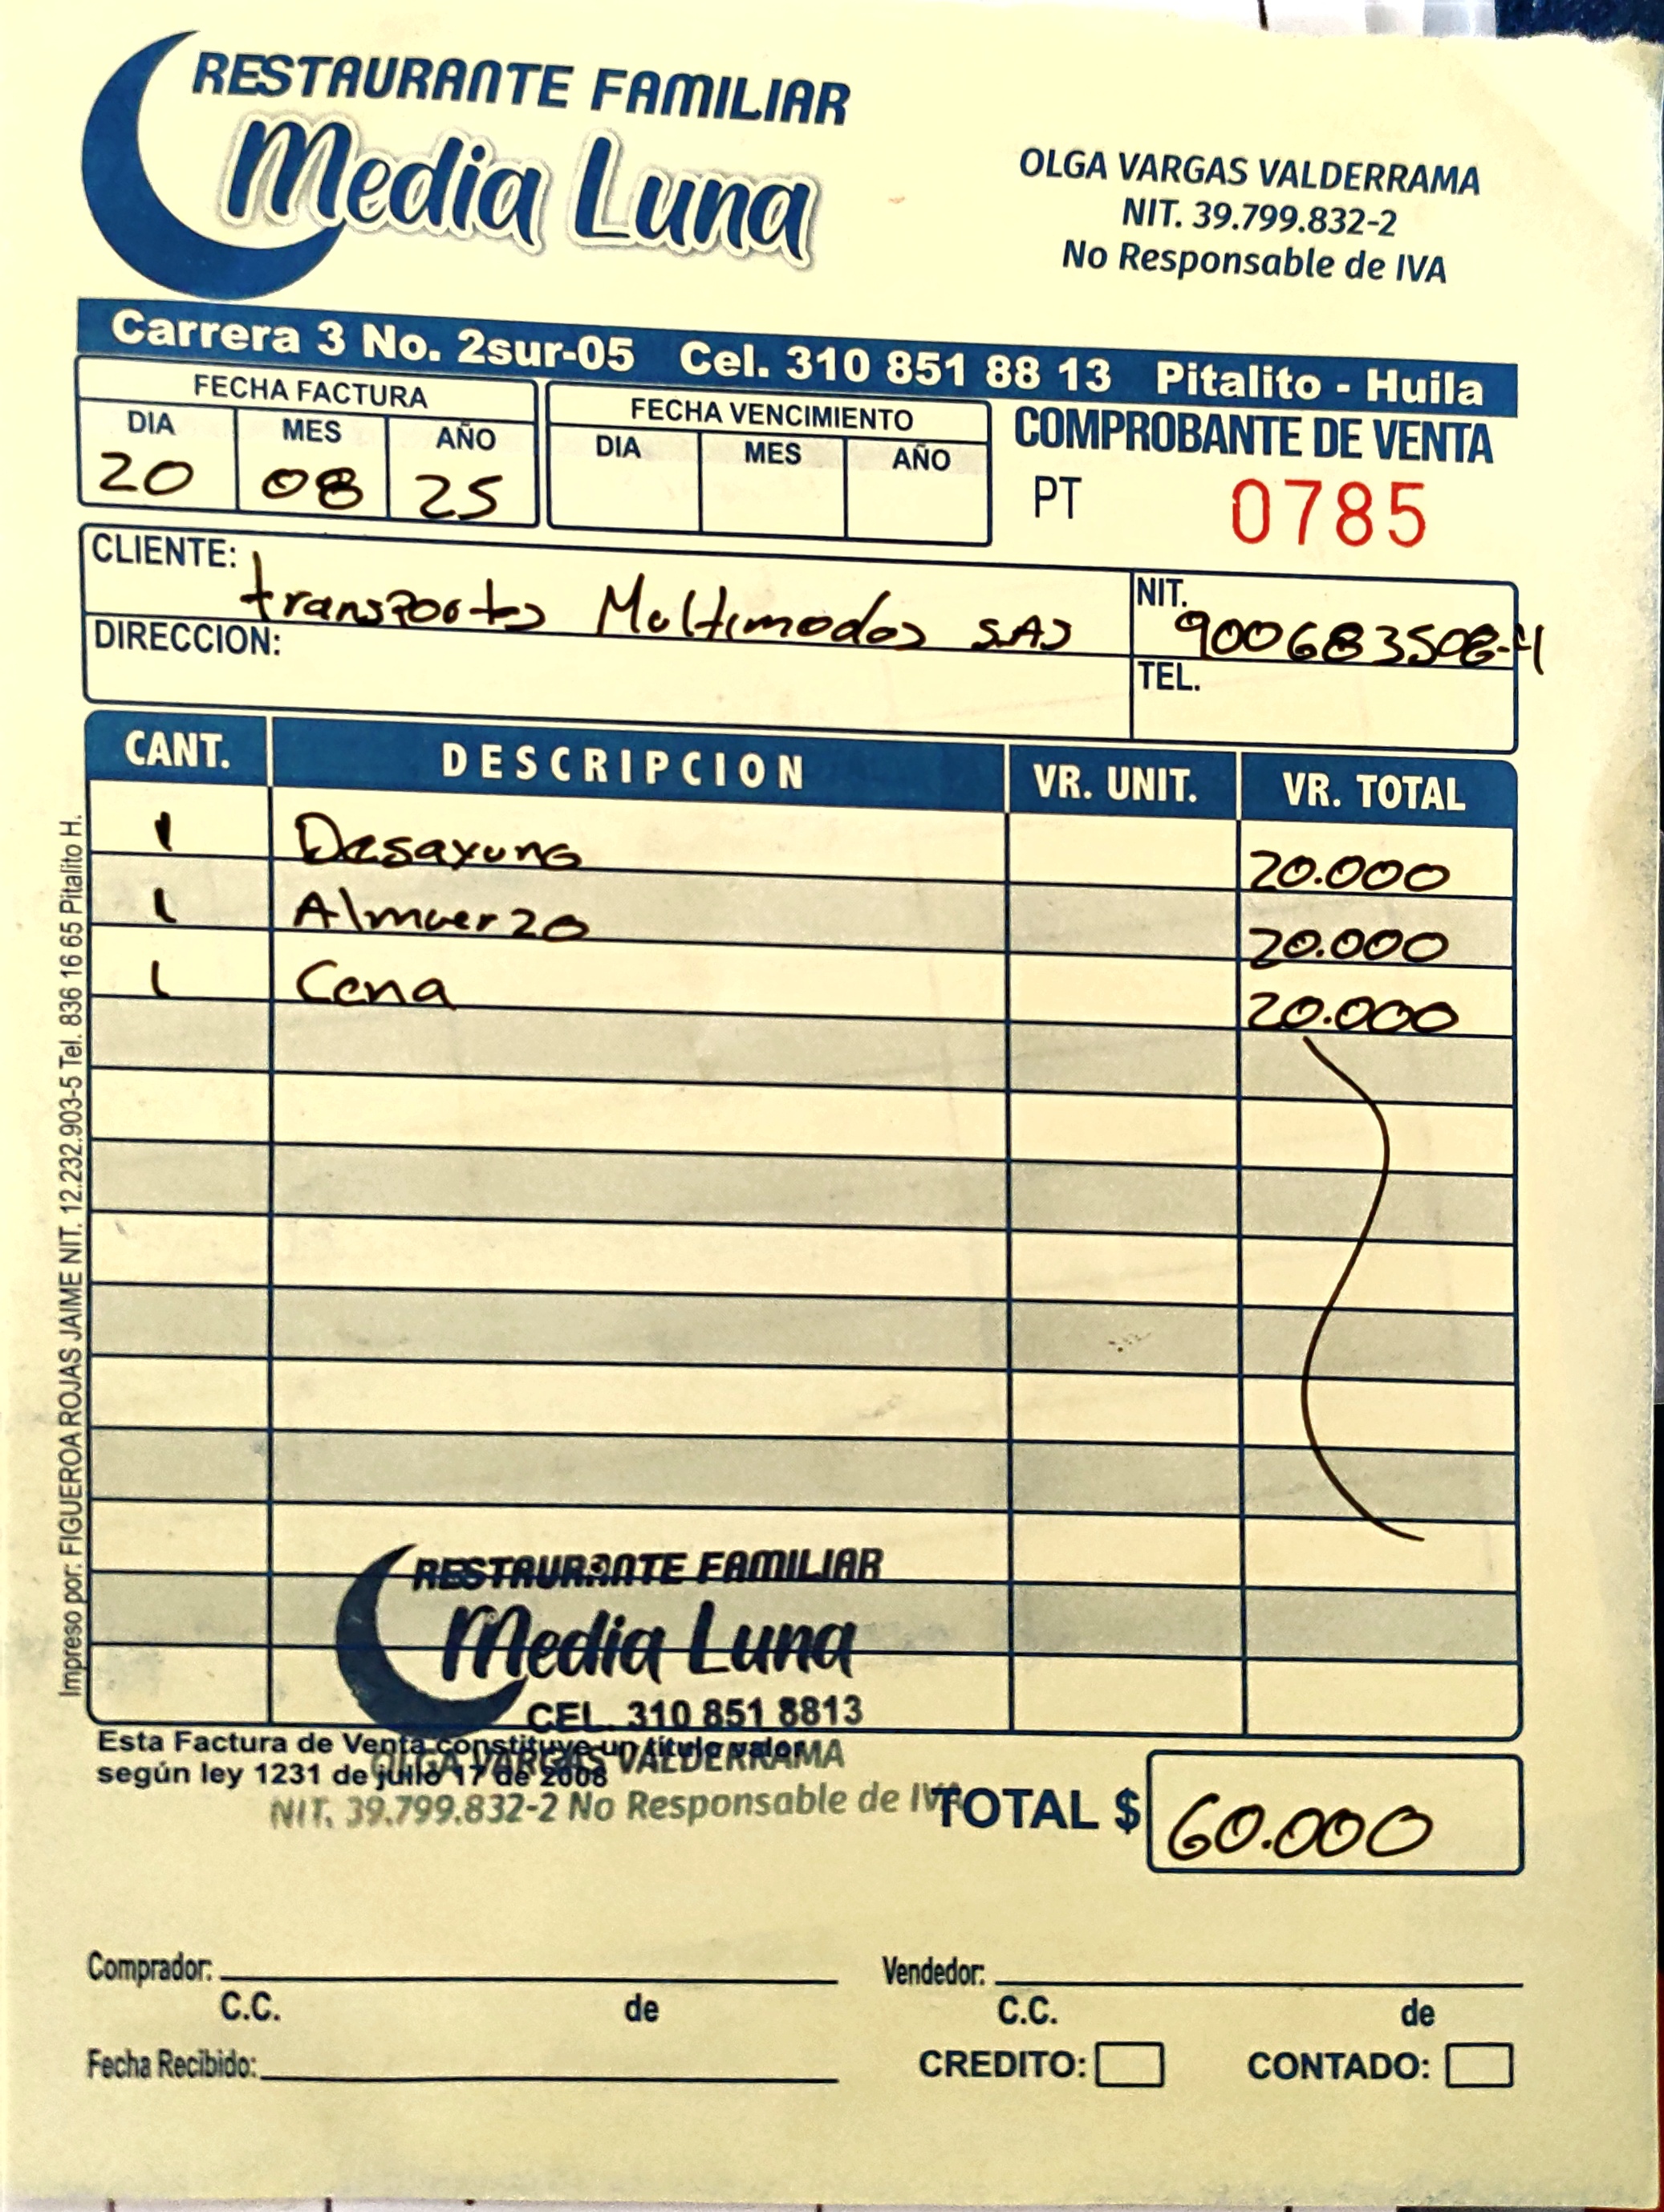 RESTAURANTE FAMILIAR
Media Luna
OLGA VARGAS VALDERRAMA
NIT. 39.799.832-2
No Responsable de IVA
Carrera 3 No. 2sur-05 Cel. 310 851 88 13 Pitalito - Huila
FECHA FACTURA
DIA MES AÑO
20 08 25
FECHA VENCIMIENTO
DIA MES AÑO
COMPROBANTE DE VENTA
PT 0785
CLIENTE: transportes Multimodos SAS
NIT. 900683508-4
DIRECCION:
TEL.
CANT. DESCRIPCION VR. UNIT. VR. TOTAL
1 Desayuno 20.000
1 Almuerzo 20.000
1 Cena 20.000
Impreso por: FIGUEROA ROJAS JAIME NIT. 12.232.903-5 Tel. 836 16 65 Pitalito H.
RESTAURANTE FAMILIAR
Media Luna
CEL. 310 851 8813
OLGA VARGAS VALDERRAMA
NIT. 39.799.832-2 No Responsable de IVA
Esta Factura de Venta constituye un titulo valor
según ley 1231 de julio 17 de 2008
TOTAL $ 60.000
Comprador:
C.C. de
Vendedor:
C.C. de
Fecha Recibido:
CREDITO: CONTADO: